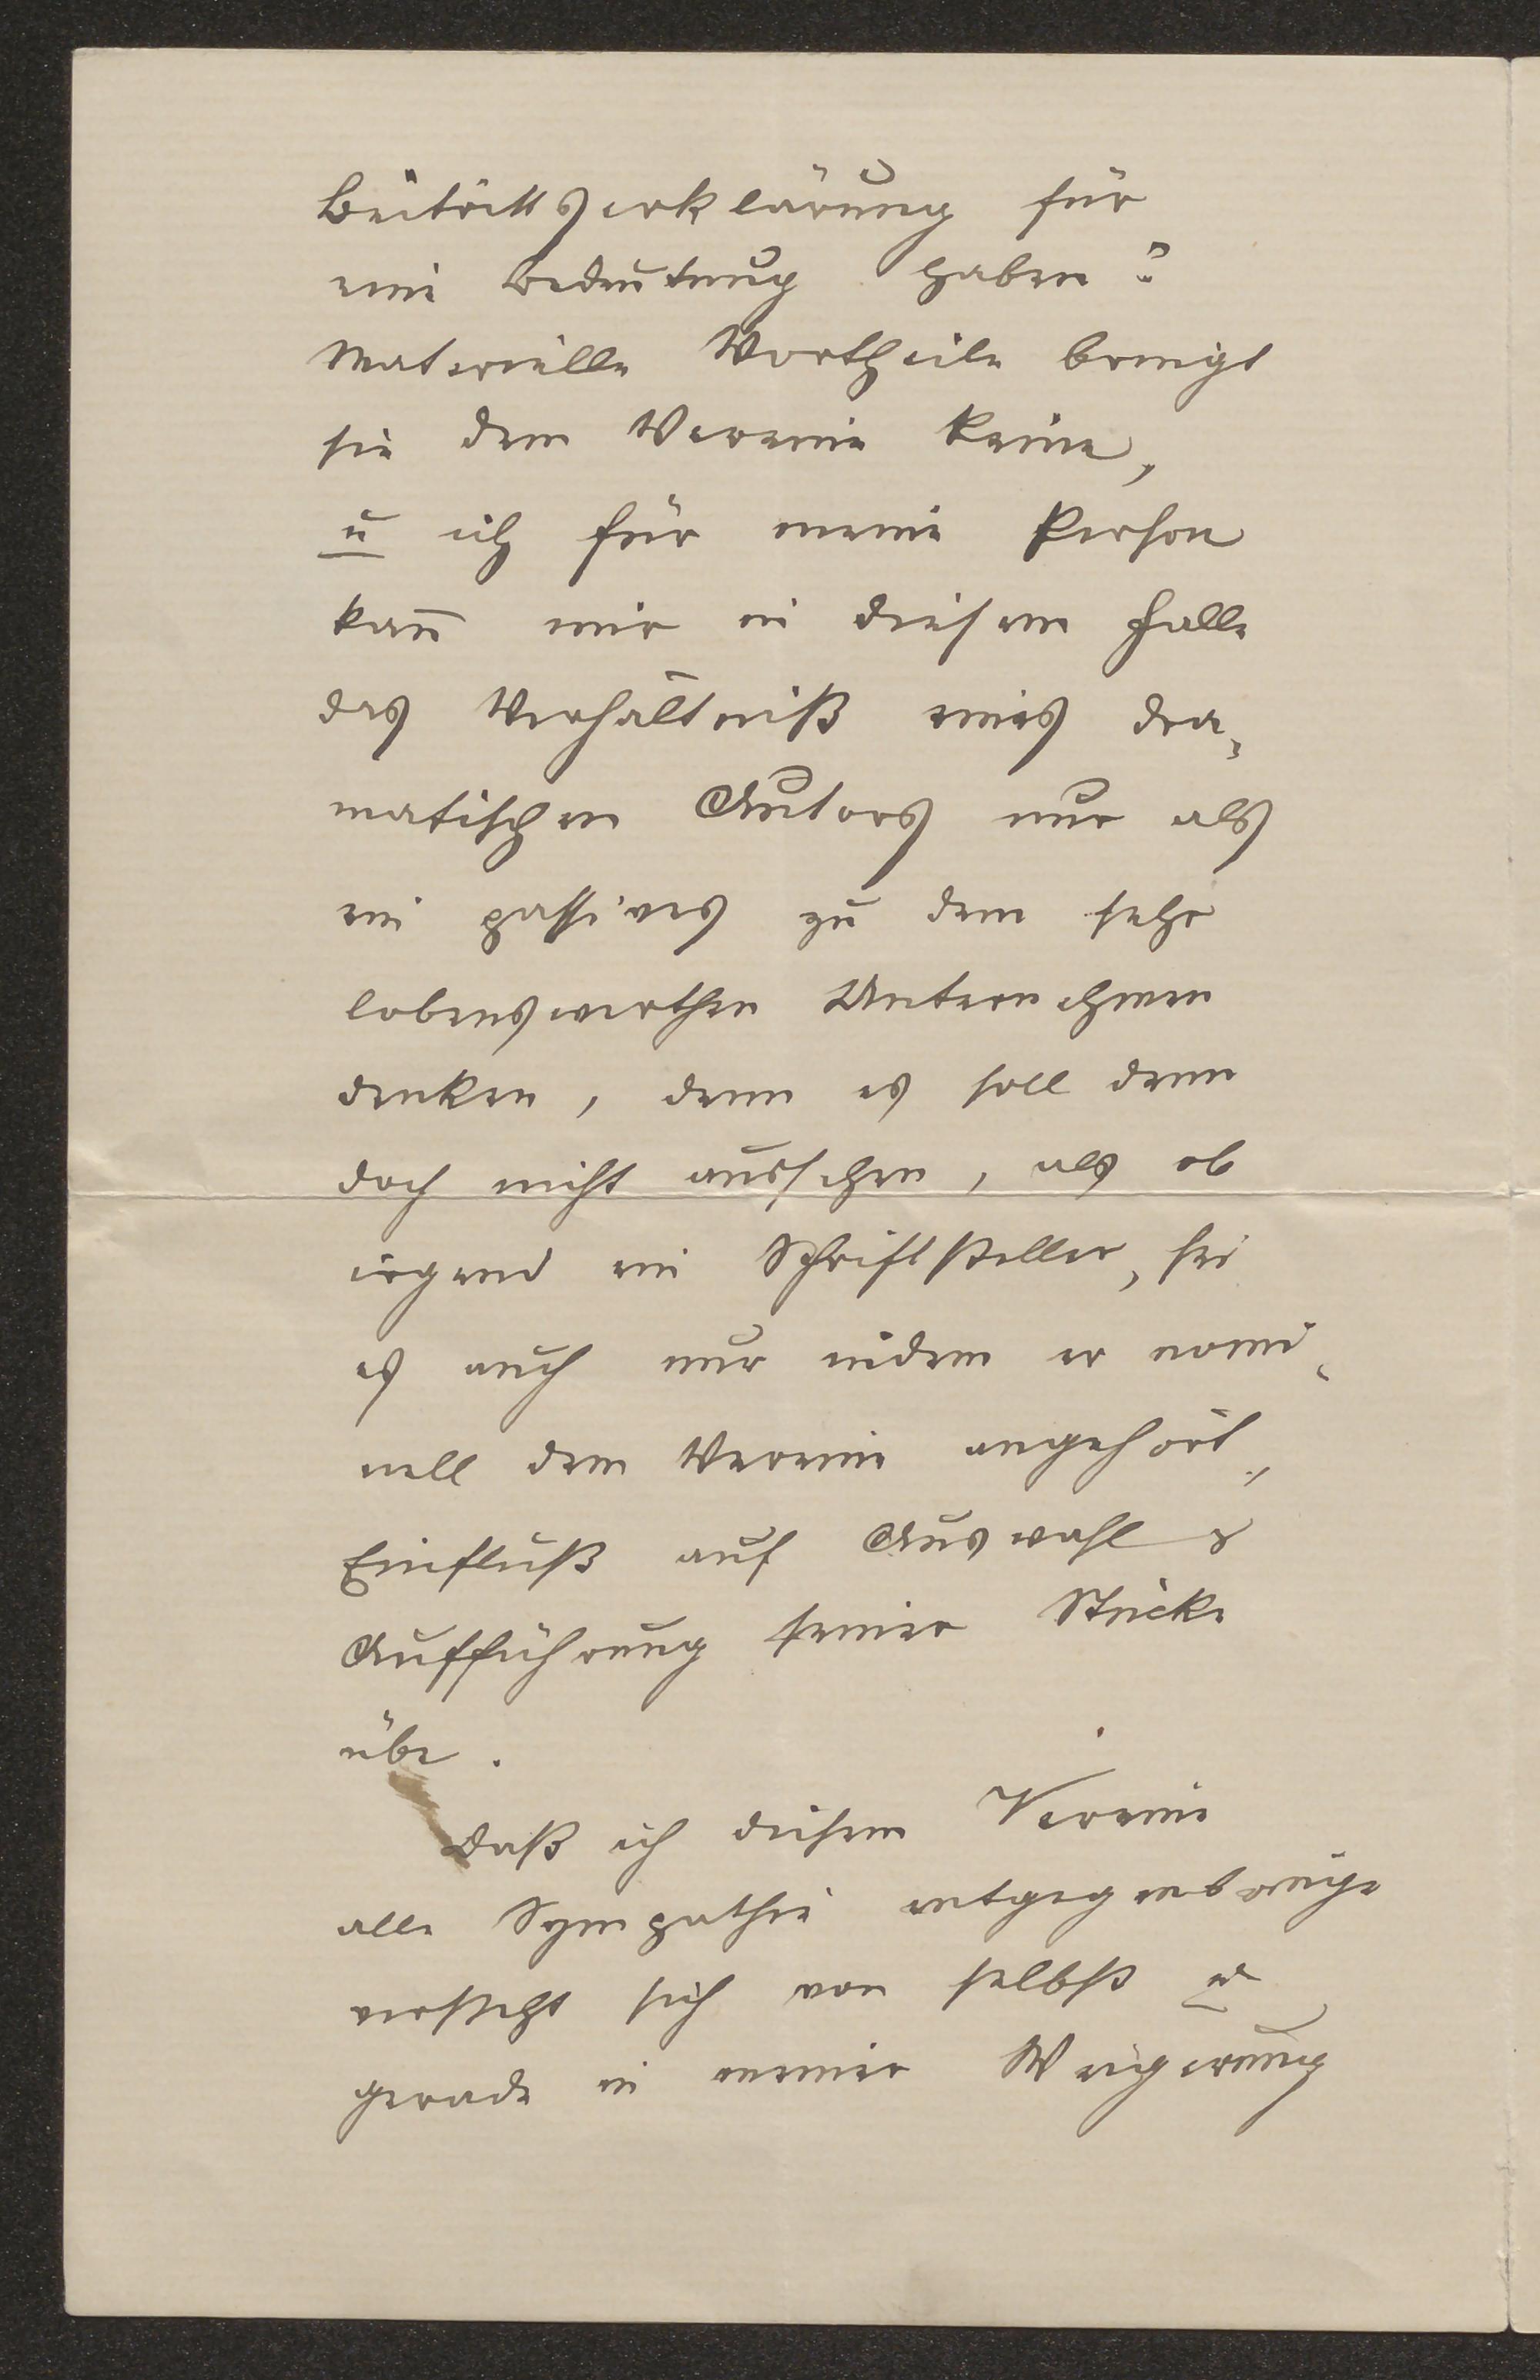 Beitrittserklärung für
eine Bedeutung haben?
Materielle Vortheile bringt
sie dem Vereine keine,
u ich für meine Person
kan̄ mir in diesem Falle
das Verhältniß eines dra-
matischen Autors nur als
ein passives zu dem sehr
lobenswerthen Unternehmen
denken, denn es soll denn
doch nicht aussehen, als ob
irgend ein Schriftsteller, sei
es auch nur indem er nomi-
nell dem Vereine angehört,
Einfluß auf Auswahl &
Aufführung seiner Stücke
übe.
Daß ich diesem Vereine
alle Sympathie entgegenbringe
versteht sich von selbst u
gerade in meiner Weigerung